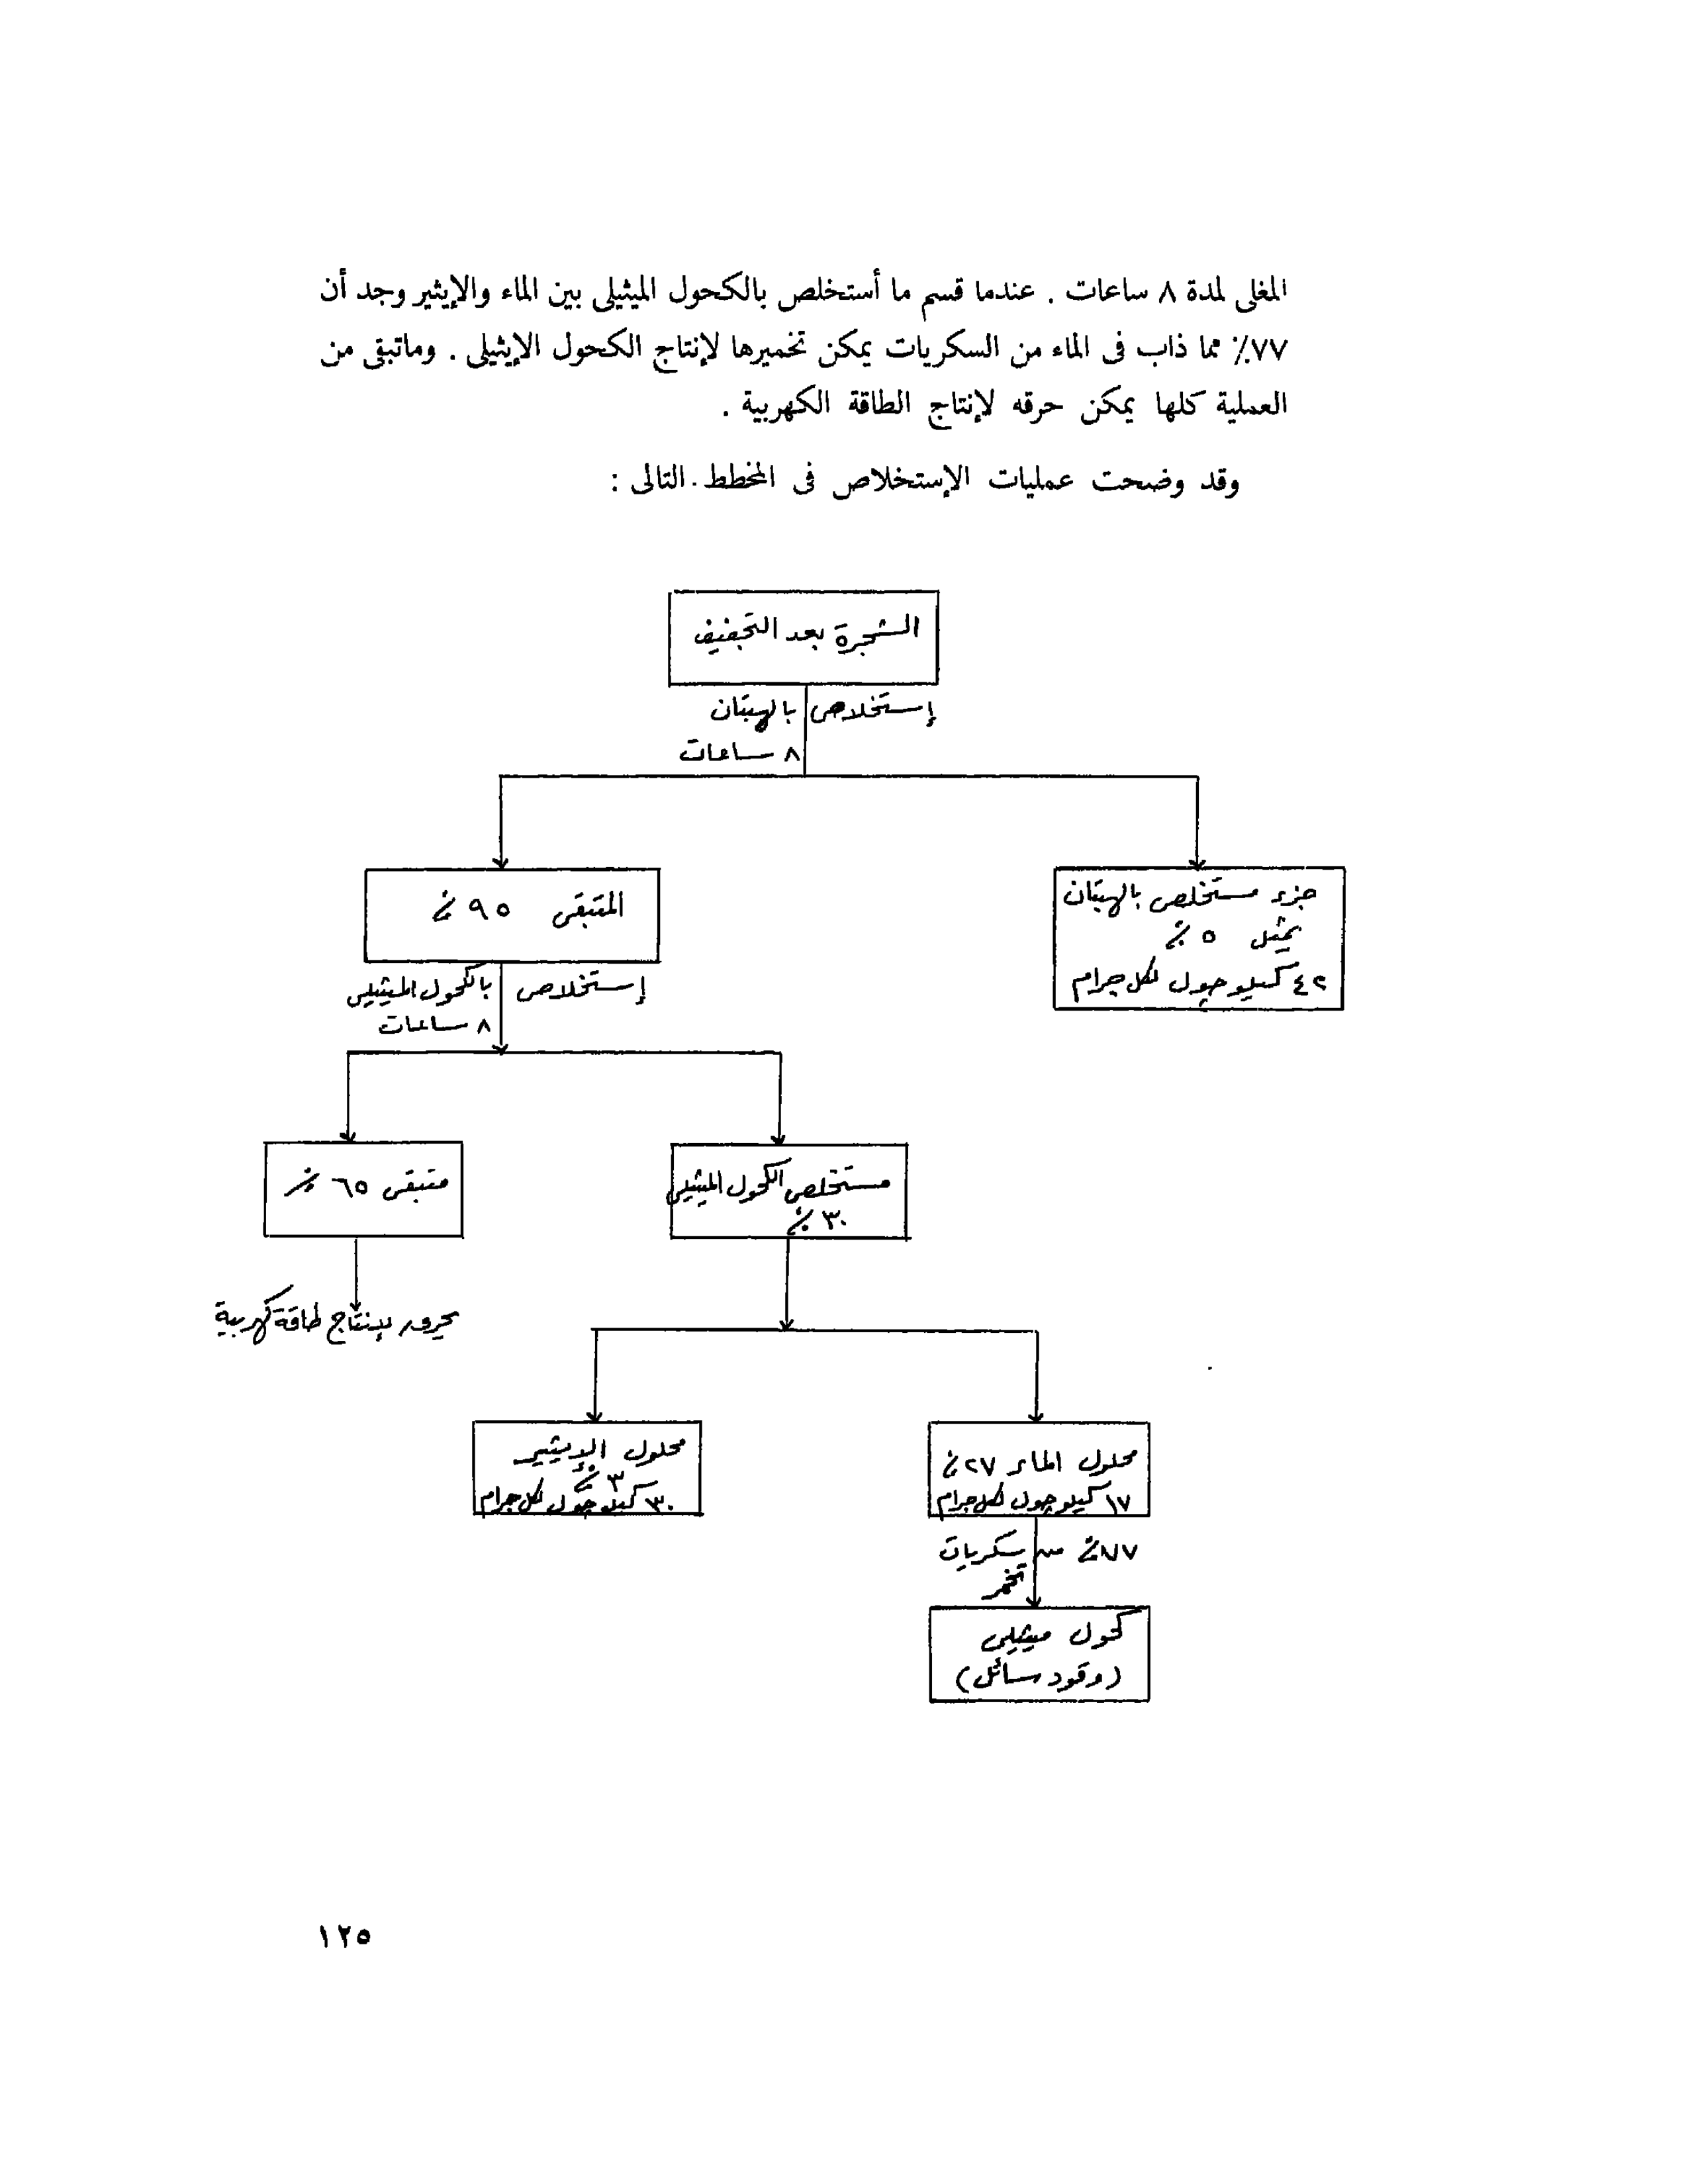 المغلى لمدة ٨ ساعات . عندما قسم ما أستخلص بالكحول الميثيلى بين الماء والإيثير وجد أن
٧٧٪ مما ذاب فى الماء من السكريات يمكن تخميرها لإنتاج الكحول الإيثيلى . وماتبقى من
العملية كلها يمكن حرقه لإنتاج الطاقة الكهربية .
وقد وضحت عمليات الإستخلاص فى المخطط التالى :
الشجرة بعد التجفيف
إستخلاص بالهبتان
٨ ساعات
جزء مستخلص بالهبتان
يمثل ٥ ٪
٤٢ كيلو جول لكل جرام
المتبقى ٩٥ ٪
إستخلاص بالكحول الميثيلى
٨ ساعات
مستخلص الكحول الميثيلى
٣٠ ٪
متبقى ٦٥ ٪
يحرق لإنتاج طاقة كهربية
محلول الماء ٢٧ ٪
١٧ كيلو جول لكل جرام
محلول الإيثير
٣ ٪
٣٠ كيلو جول لكل جرام
٧٧٪ من سكريات
تخمر
كحول ميثيلى
(وقود سائل)
١٢٥